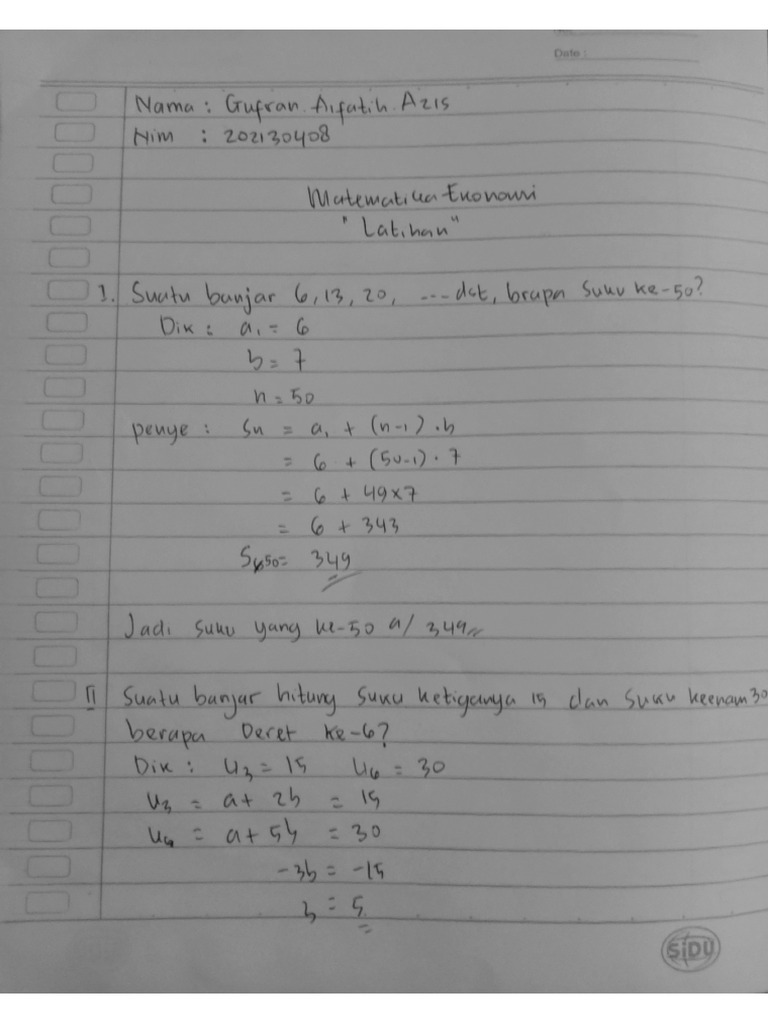 Date :
Nama : Gufran. Alfatih. Azis
Nim : 202130408
Matematika Ekonomi
"Latihan"
I. Suatu banjar 6, 13, 20, ---- dst, brapa suku ke-50?
Dik : a₁ = 6
b = 7
n = 50
penye : Sn = a₁ + (n-1) . b
= 6 + (50-1) . 7
= 6 + 49x7
= 6 + 343
S50= 349
Jadi suku yang ke-50 a/ 349
II Suatu banjar hitung suku ketiganya 15 dan suku keenam 30
berapa Deret ke-6?
Dik : U₃ = 15 U₆ = 30
U₃ = a+ 2b = 15
U₆ = a+ 5b = 30
-3b = -15
b = 5
SiDU